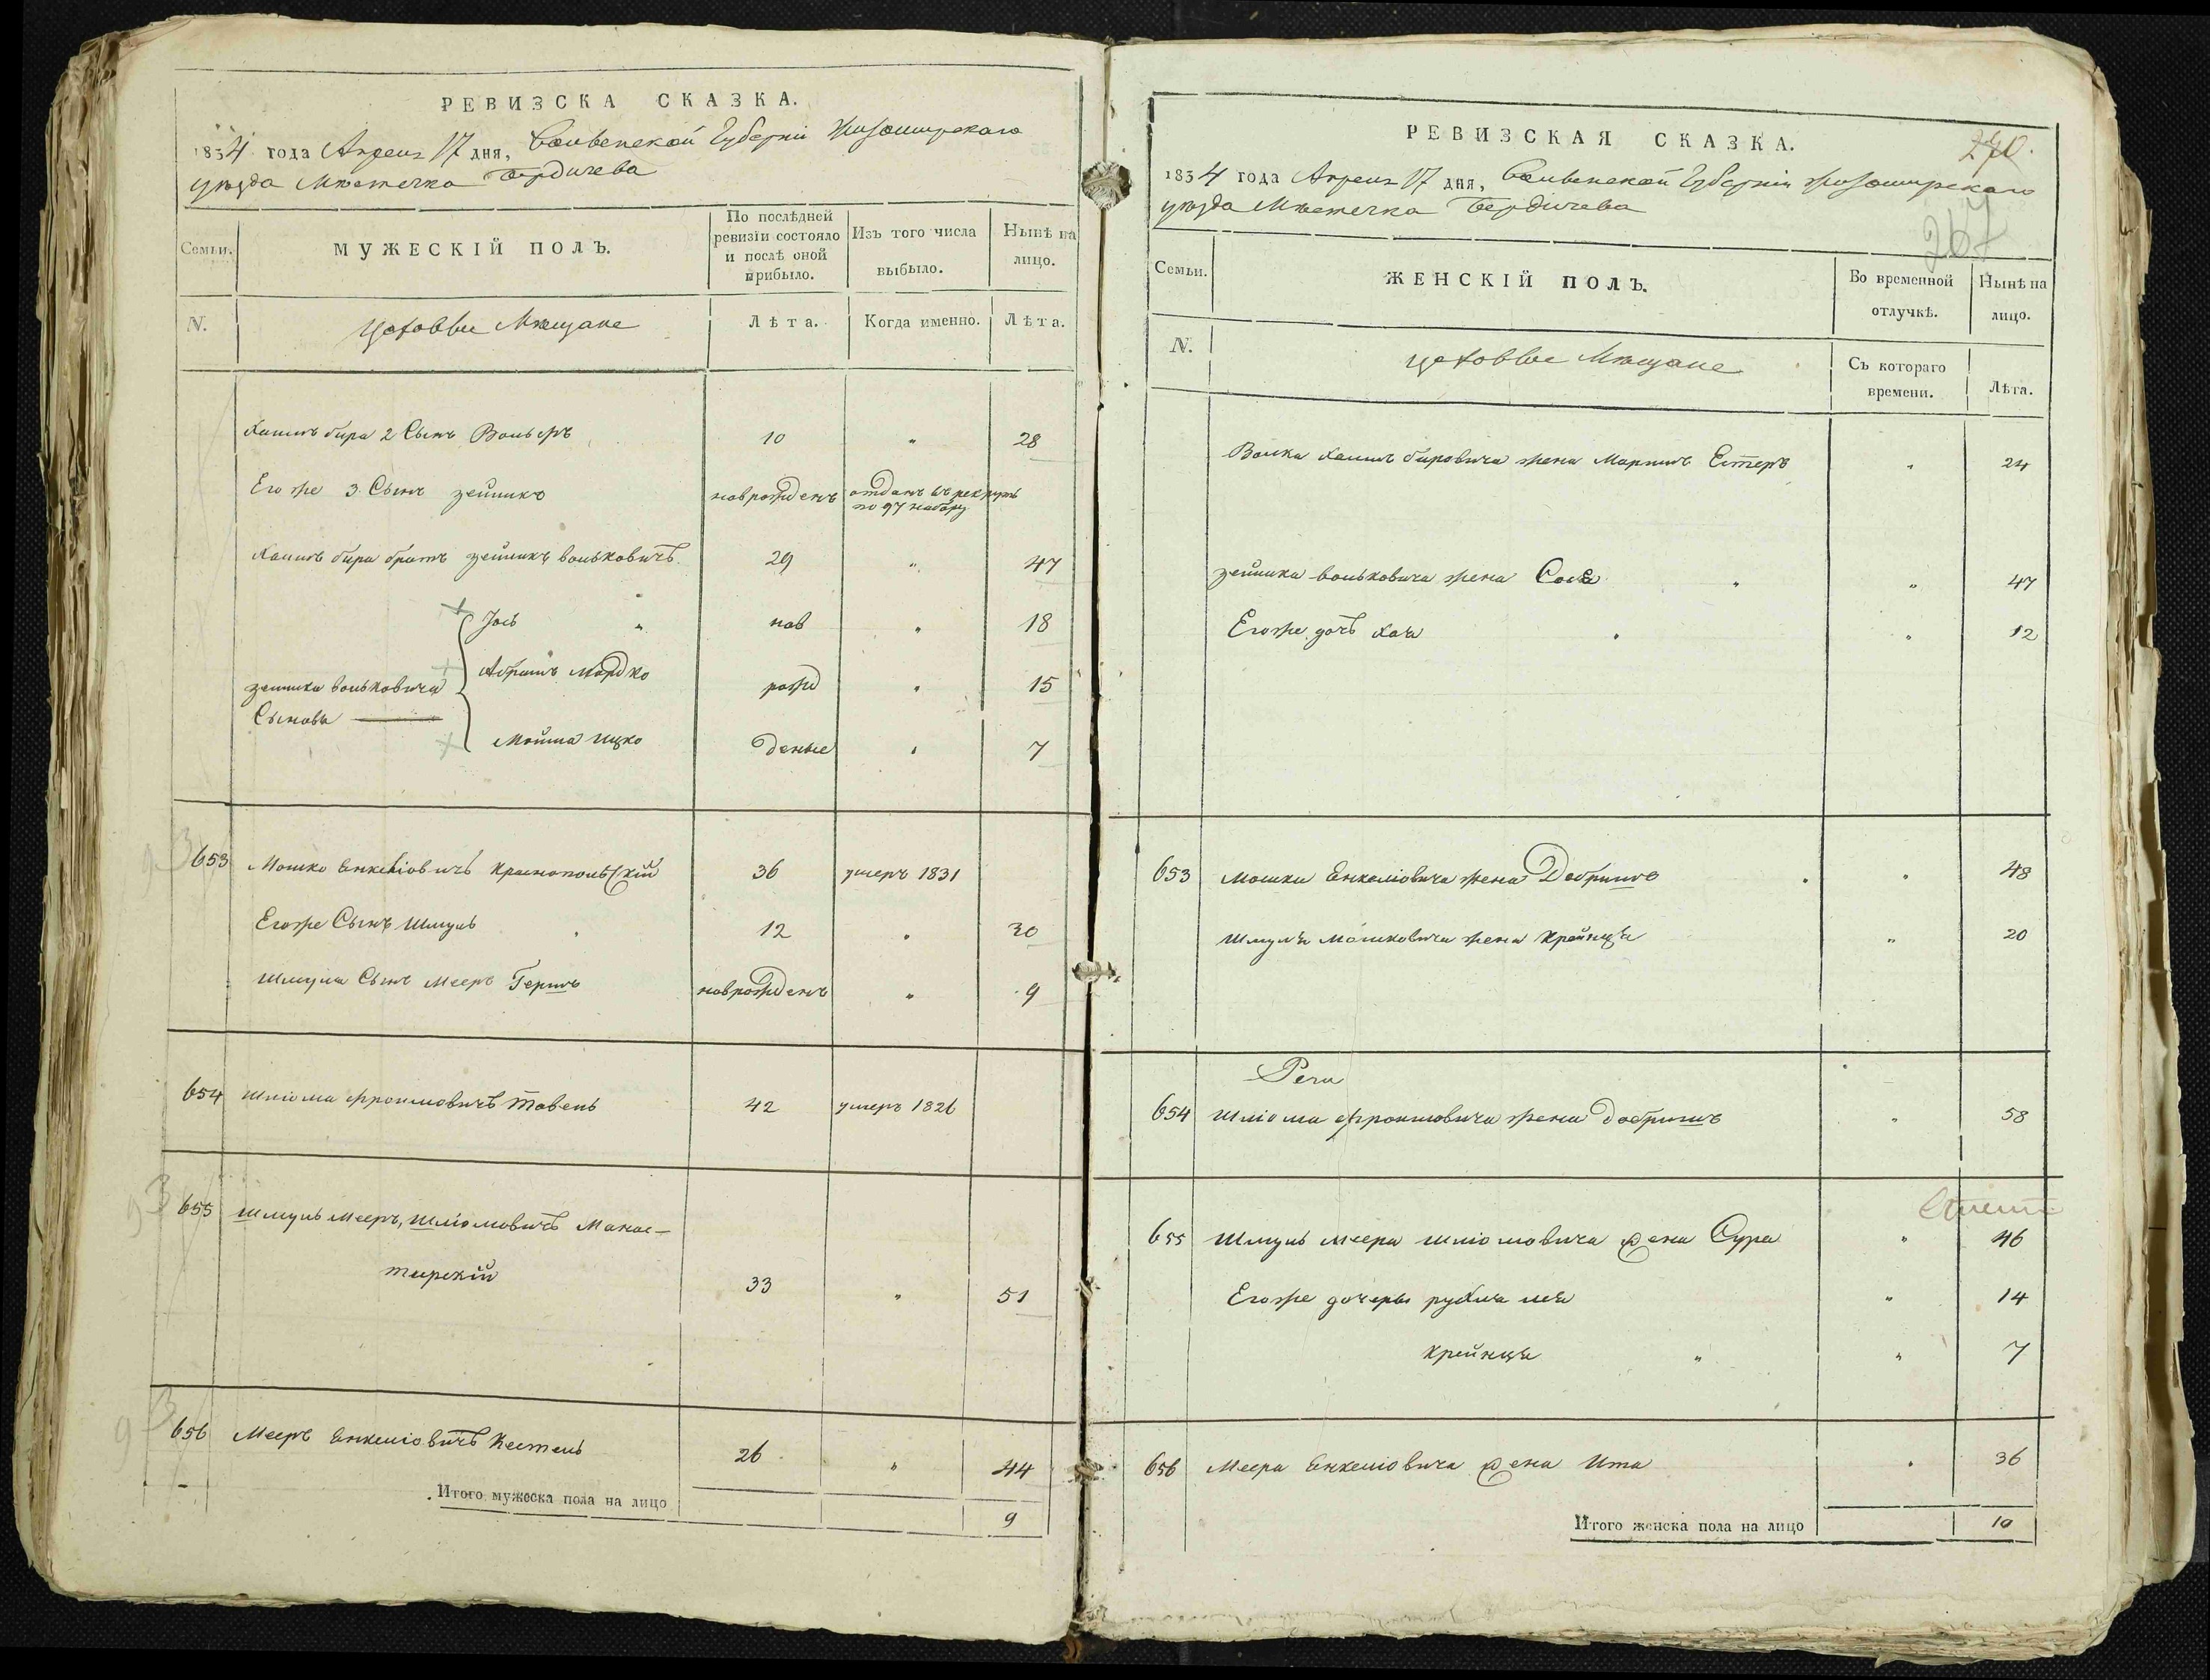 РЕВИЗСКА СКАЗКА.
1834 года Апреля 17 дня, Волынской Губерніи Житомирскаго
уѣзда Мѣстечка Бердичева
Семьи.
МУЖЕСКІЙ ПОЛЪ.
По послѣдней ревизіи состояло и послѣ оной прибыло.
Изъ того числа выбыло.
Нынѣ на лицо.
N.
Цеховые Мѣщане
Лѣта.
Когда именно.
Лѣта.
2 Сынъ Вольфъ 10 " 28
Егоже 3 Сынъ зейликъ новрожденъ отданъ въ рекруты
по 97 набору
братъ зейликъ вольковичъ 29 " 47
Іось " нов " 18
Абрамъ Мордко рожд " 15
зейлика вольковича
Сыновья
Мойша Ицко денные " 7
653 Мошко Енкеліовичъ Краснопольскій 36 умеръ 1831
Егоже Сынъ Шмуль 12 " 30
Шмуля Сынъ Мееръ Гершъ новрожденъ " 9
654 Шліома Фроимовичъ Товель 42 умеръ 1826
655 Шмуль Мееръ, Шліомовичъ Манас-
тырскій 33 " 51
656 Мееръ Енкеліовичъ Кестель 26 " 44
Итого мужеска пола на лицо 9
РЕВИЗСКАЯ СКАЗКА.
270.
1834 года Апреля 17 дня, Волынской Губерніи Житомирскаго
уѣзда Мѣстечка Бердичева
267
Семьи.
ЖЕНСКІЙ ПОЛЪ.
Во временной отлучкѣ.
Нынѣ на лицо.
N.
Цеховые Мѣщане
Съ котораго времени.
Лѣта.
Волька жена Маріимъ Естеръ " 24
зейлика вольковича жена Сося " " 47
Егоже дочь Хая " " 12
653 Мошки Енкеліовича жена Добришъ " " 48
Шмуля Мошковича жена Крейнця " 20
654 Шліома Фроимовича жена Добришъ " 58
655 Шмуль Меера Шліомовича жена Сура " 46
Егоже дочеры рухля лея " 14
Крейнця " " 7
656 Меера Енкеліовича жена Ита " 36
Итого женска пола на лицо 10